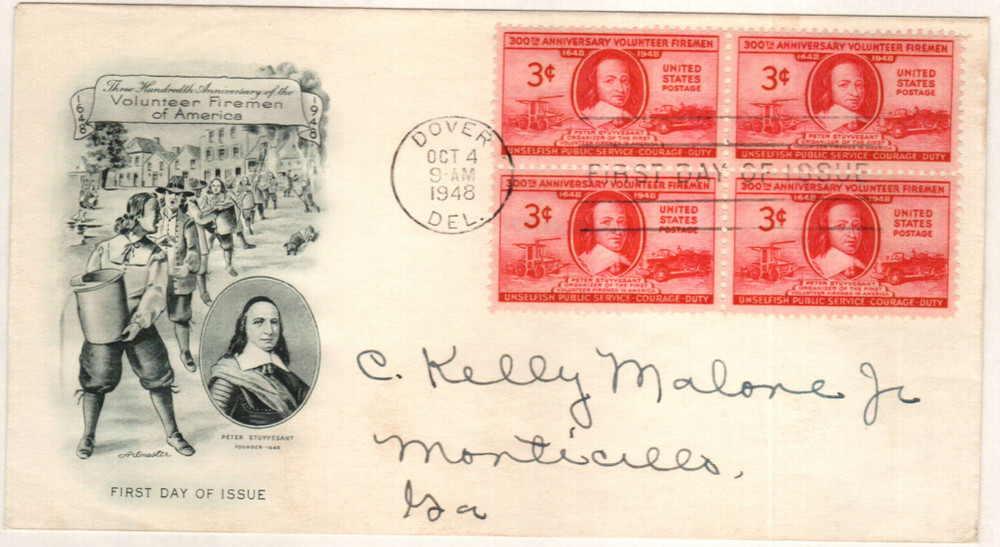 Three Hundredth Anniversary of the
Volunteer Firemen
of America
1648
1948
PETER STUYVESANT
FOUNDER-1648
Artmaster
FIRST DAY OF ISSUE
DOVER
OCT 4
9-AM
1948
DEL.
FIRST DAY OF ISSUE
300TH ANNIVERSARY VOLUNTEER FIREMEN
1648 1948
3¢
UNITED
STATES
POSTAGE
PETER STUYVESANT
ORGANIZER OF THE FIRST
UNSELFISH PUBLIC SERVICE-COURAGE-DUTY
300TH ANNIVERSARY VOLUNTEER FIREMEN
1648 1948
3¢
UNITED
STATES
POSTAGE
PETER STUYVESANT
UNSELFISH PUBLIC SERVICE-COURAGE-DUTY
300TH ANNIVERSARY VOLUNTEER FIREMEN
1648 1948
3¢
UNITED
STATES
POSTAGE
PETER STUYVESANT
ORGANIZER OF THE FIRST
VOLUNTEER FIREMEN IN AMERICA
UNSELFISH PUBLIC SERVICE-COURAGE-DUTY
300TH ANNIVERSARY VOLUNTEER FIREMEN
1648 1948
3¢
UNITED
STATES
POSTAGE
PETER STUYVESANT
ORGANIZER OF THE FIRST
VOLUNTEER FIREMEN IN AMERICA
UNSELFISH PUBLIC SERVICE-COURAGE-DUTY
C. Kelly Malone Jr
Monticello,
Ga